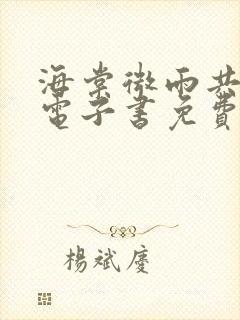 海棠微雨共
電子書免費
楊斌慶